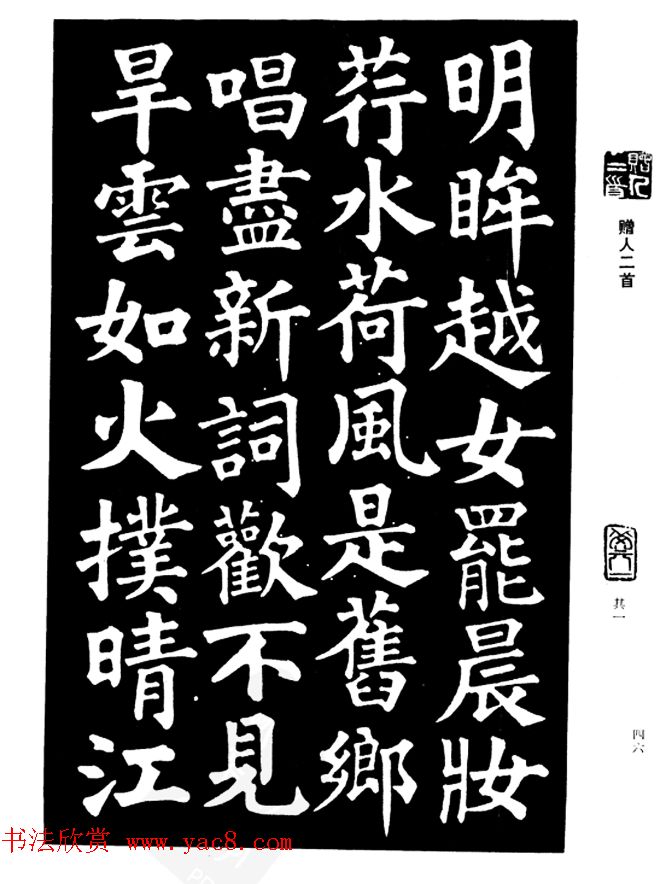 明眸越女罷晨妝
荇水荷風是舊鄉
唱盡新詞歡不見
旱雲如火撲晴江
赠人二首
其一
四六
书法欣赏 www.yac8.com